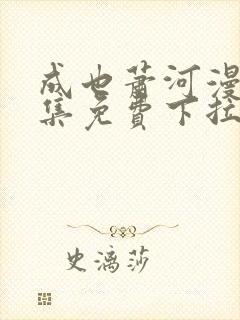 成也萧河漫
集免费下拉
史漓莎